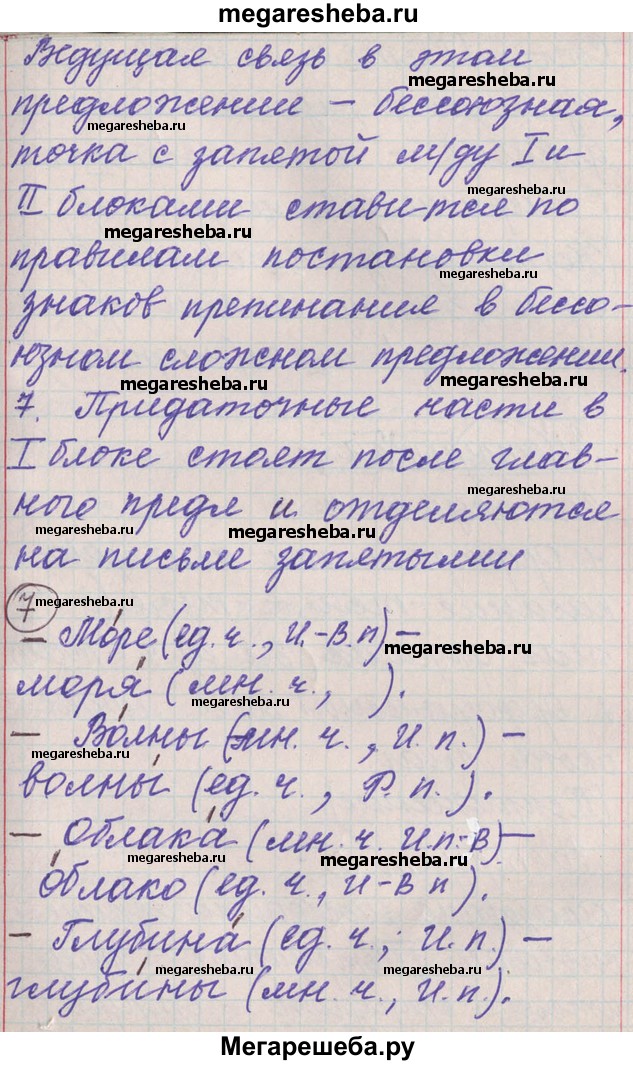 megaresheba.ru
Ведущая связь в этом
megaresheba.ru
предложении – бессоюзная,
megaresheba.ru
megaresheba.ru
точка с запятой м/ду I и
megaresheba.ru
II блоками ставится по
megaresheba.ru
правилам постановки
megaresheba.ru
знаков препинания в бессо-
юзном сложном предложении.
megaresheba.ru
megaresheba.ru
7. Придаточные части в
I блоке стоят после глав-
megaresheba.ru
ного предл и отделяются
megaresheba.ru
megaresheba.ru
на письме запятыми
7
megaresheba.ru
– Мо́ре (ед. ч., И.-В. п) –
megaresheba.ru
моря́ (мн. ч., ).
megaresheba.ru
– Во́лны (мн. ч., И. п.) –
megaresheba.ru
волны́ (ед. ч., Р. п.).
– Облака́ (мн. ч. И.п.-В) –
megaresheba.ru
megaresheba.ru
о́блако (ед. ч., И-В п).
– Глубина́ (ед. ч., И. п.) –
megaresheba.ru
megaresheba.ru
глуби́ны (мн. ч., И. п.).
megaresheba.ru
Мегарешеба.ру